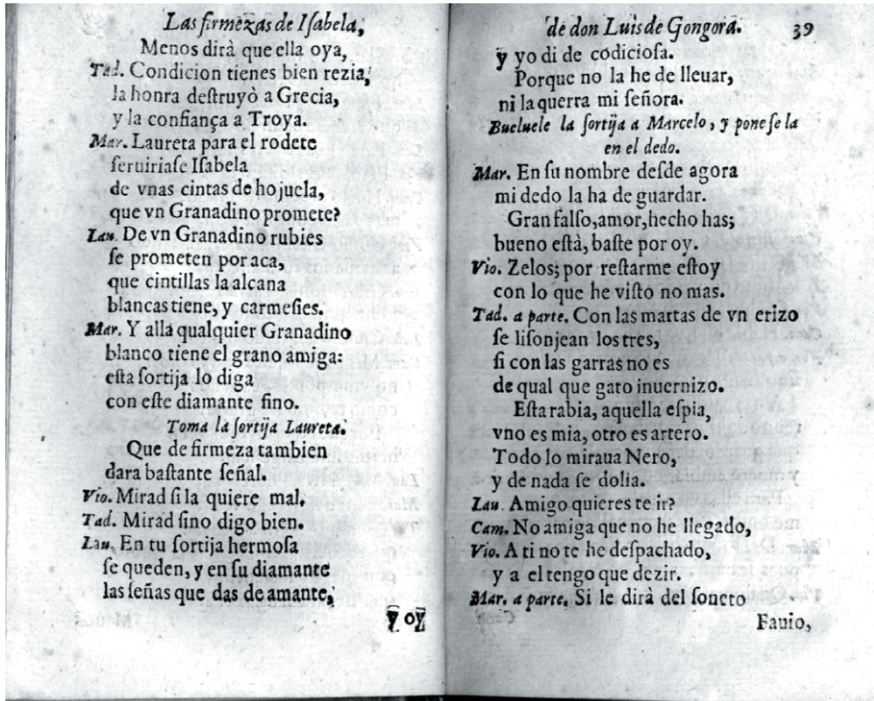 Las firmezas de Iſabela,
Menos dirà que ella oya,
Tad. Condicion tienes bien rezia,
la honra deſtruyò a Grecia,
y la confiança a Troya.
Mar. Laureta para el rodete
ſeruiriaſe Iſabela
de vnas cintas de hojuela,
que vn Granadino promete?
Lau. De vn Granadino rubies
ſe prometen por aca,
que cintillas la alcana
blancas tiene, y carmeſies.
Mar. Y allà qualquier Granadino
blanco tiene el grano amiga:
eſta ſortija lo diga
con eſte diamante fino.
Toma la ſortija Laureta.
Que de firmeza tambien
dara baſtante ſeñal.
Vio. Mirad ſi la quiere mal.
Tad. Mirad ſino digo bien.
Lau. En tu ſortija hermoſa
ſe queden, y en ſu diamante
las ſeñas que das de amante,
y oy
de don Luis de Gongora. 39
y yo di de codicioſa.
Porque no la he de lleuar,
ni la querra mi ſeñora.
Bueluele la ſortija a Marcelo, y poneſe la
en el dedo.
Mar. En ſu nombre deſde agora
mi dedo la ha de guardar.
Gran falſo, amor, hecho has;
bueno eſtà, baſte por oy.
Vio. Zelos; por reſtarme eſtoy
con lo que he viſto no mas.
Tad. a parte. Con las martas de vn erizo
ſe liſonjean los tres,
ſi con las garras no es
de qual que gato inuernizo.
Eſta rabia, aquella eſpia,
vno es mia, otro es artero.
Todo lo miraua Nero,
y de nada ſe dolia.
Lau. Amigo quieres te ir?
Cam. No amiga que no he llegado,
Vio. A ti no te he deſpachado,
y a el tengo que dezir.
Mar. a parte. Si le dirà del ſoneto
Fauio,